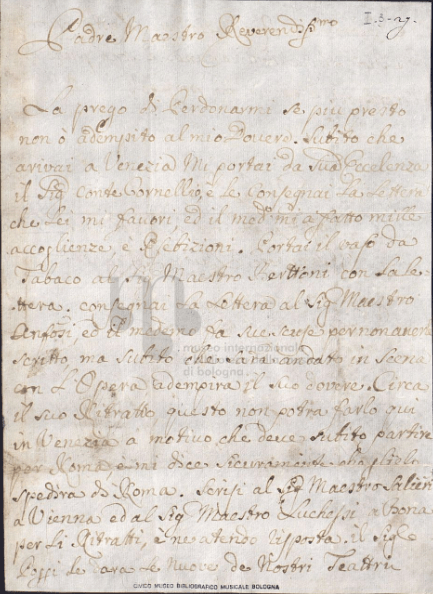 Padre Maestro Reverendissmo
I.3-27.
La prego di Perdonarmi se piu presto
non ò adempito al mio Dovere. Subito che
arivai a Venezia Mi portai da Sua Eccelenza
il Sig conte Cornellio, e le Consegnai La Lettera
che Lei mi favori, ed il medmo mi a fatto mille
accoglienze, e Esebizioni. Portai il vaso da
Tabaco al Sig Maestro Berttoni con la le-
ttera. consegnai La Lettera al Sig Maestro
Anfosi, ed il medemo fa sue scuse per non averle
scritto, ma subito che sara andato in Scena
con L'Opera adempira il suo dovere. Circa
il suo Ritratto questo non potra farlo qui
in Venezia a motivo che deve subito partire
per Roma, e mi dice sicuramente che gliele
spedira di Roma. Scrissi al Sig Maestro Salieri
a Vienna ed al Sig Maestro Luchessi, a Bona
per Li Ritratti, e ne atendo risposta. il Sigle
Possi le dara le Nuove de Nostri Teattri
museo internazionale
di bologna
CIVICO MUSEO BIBLIOGRAFICO MUSICALE BOLOGNA